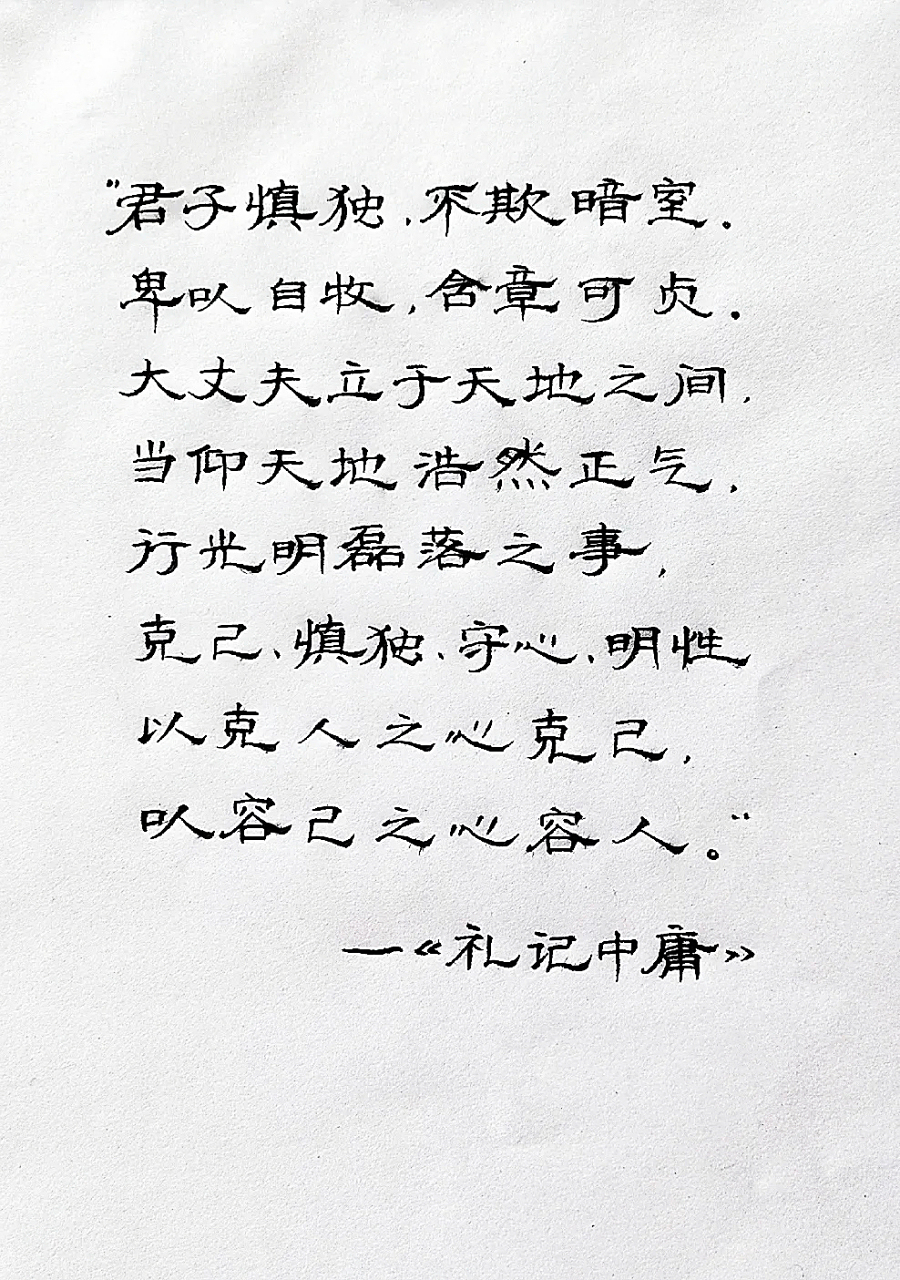 "君子慎独,不欺暗室。
卑以自牧,含章可贞。
大丈夫立于天地之间,
当仰天地浩然正气,
行光明磊落之事,
克己、慎独、守心、明性
以克人之心克己,
以容己之心容人。"
—《礼记中庸》